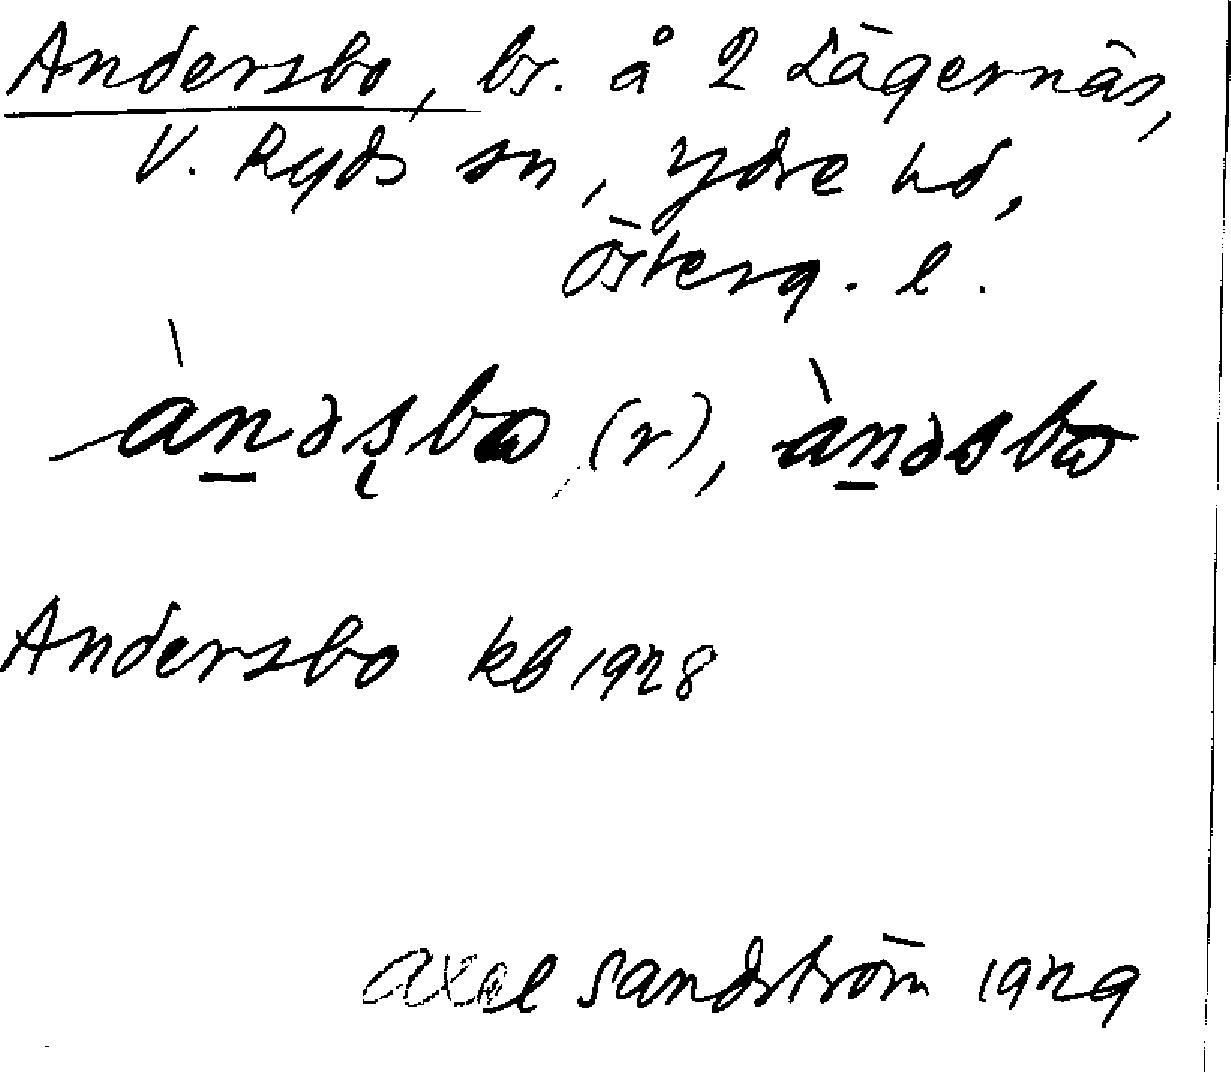 Andersbo, br. å 2 Lägernäs,
V. Ryds sn, Ydre hd,
Österg. l.
àn̠əʂbω (r), àn̠əsbω
Andersbo kb 1928
Axel Sandström 1929